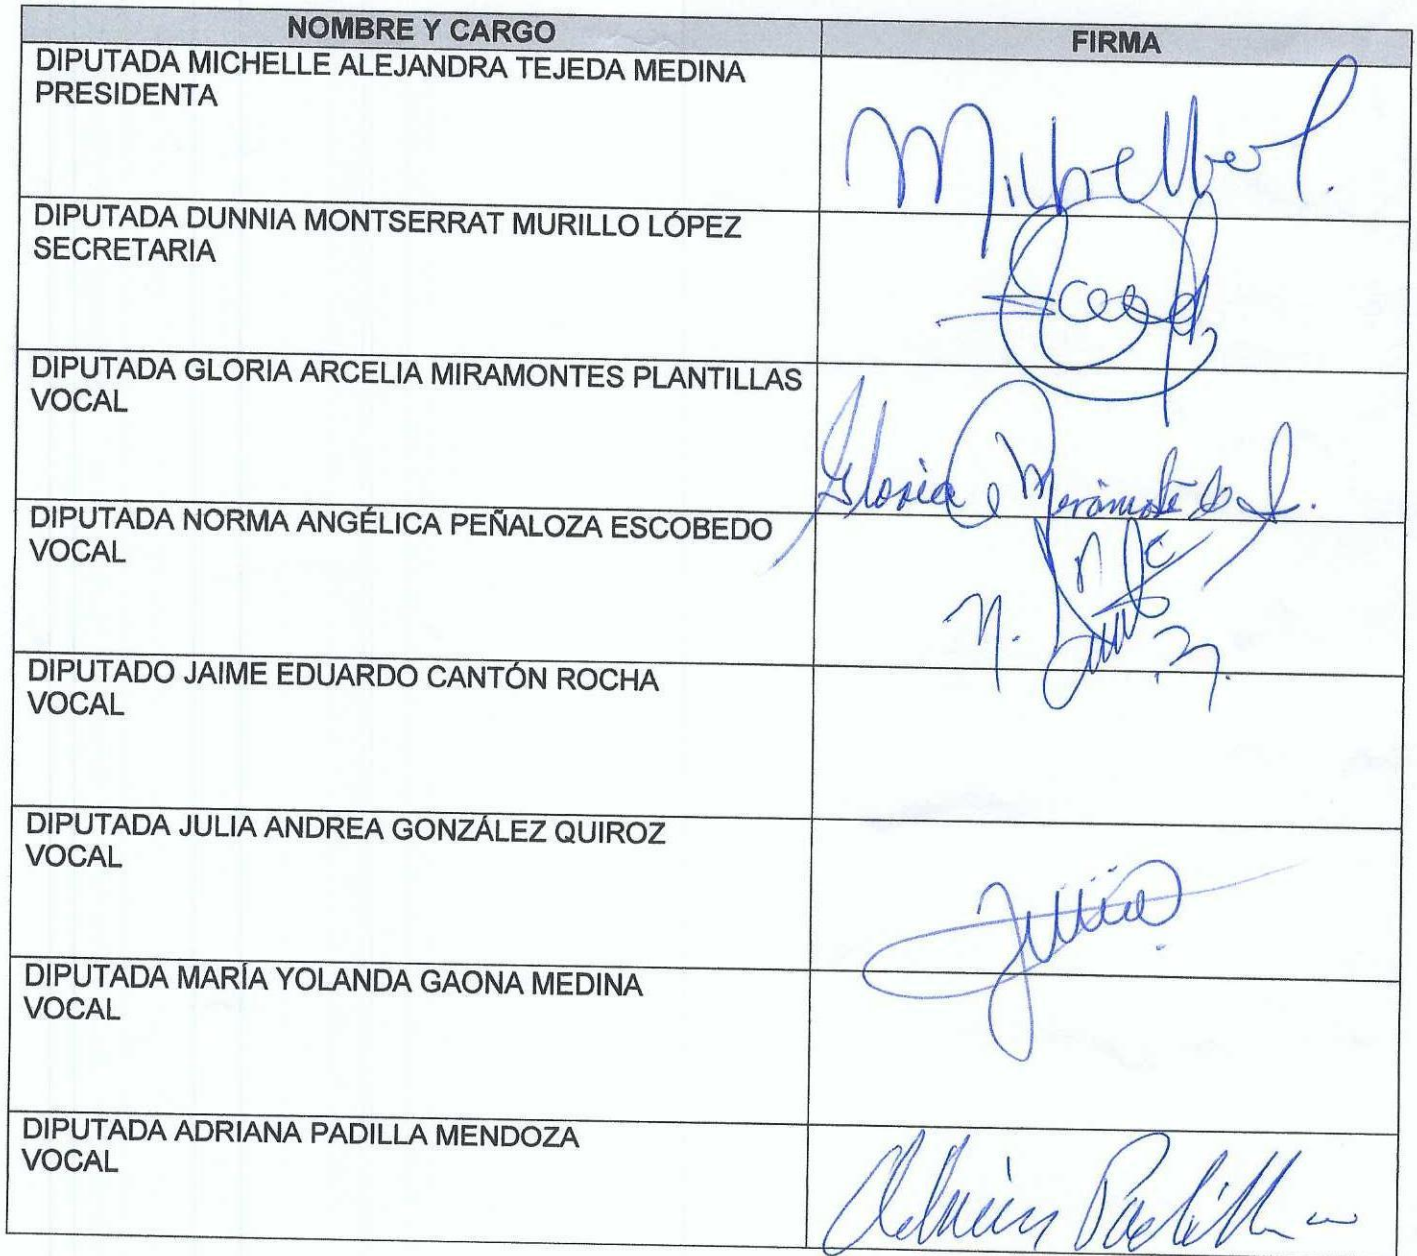 NOMBRE Y CARGO
FIRMA
DIPUTADA MICHELLE ALEJANDRA TEJEDA MEDINA
PRESIDENTA
DIPUTADA DUNNIA MONTSERRAT MURILLO LÓPEZ
SECRETARIA
DIPUTADA GLORIA ARCELIA MIRAMONTES PLANTILLAS
VOCAL
Gloria
DIPUTADA NORMA ANGÉLICA PEÑALOZA ESCOBEDO
VOCAL
DIPUTADO JAIME EDUARDO CANTÓN ROCHA
VOCAL
DIPUTADA JULIA ANDREA GONZÁLEZ QUIROZ
VOCAL
DIPUTADA MARÍA YOLANDA GAONA MEDINA
VOCAL
DIPUTADA ADRIANA PADILLA MENDOZA
VOCAL
Padilla